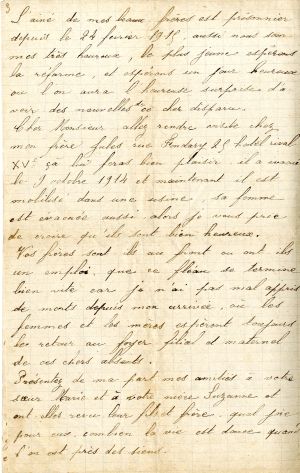 3
L'ainé de mes beaux frères est prisonnier
depuis le 24 février 1915, aussi nous som
mes très heureux, le plus jeune espérons
la reforme, et espérons un jour heureux
ou l'on aura l'heureuse surprise d'a
voir des nouvelles de ce cher disparu.
Cher Monsieur, allez rendre visite chez
mon frère Jules rue 25 hotel
XVe ça lui feras bien plaisir, il a marié
le 9 octobre 1914 et maintenant il est
mobilisé dans une usine, sa femme
est évacuée aussi alors je vous prie
de croire qu'ils sont bien heureux.
Vos frères sont ils au front ou ont ils
un emploi, que ce fléau se termine
bien vite car je n'ai pas mal appris
de morts depuis mon arrivée, où les
femmes et les mères espéront toujours
le retour au foyer filial et maternel
de ces chers absents.
Présentez de ma part mes amitiés à votre
sœur Marie et à votre nièce Suzanne et
ont elles revu leur fils et frère, quel joie
pour eux, combien la vie est douce quand
l'on est près des siens.